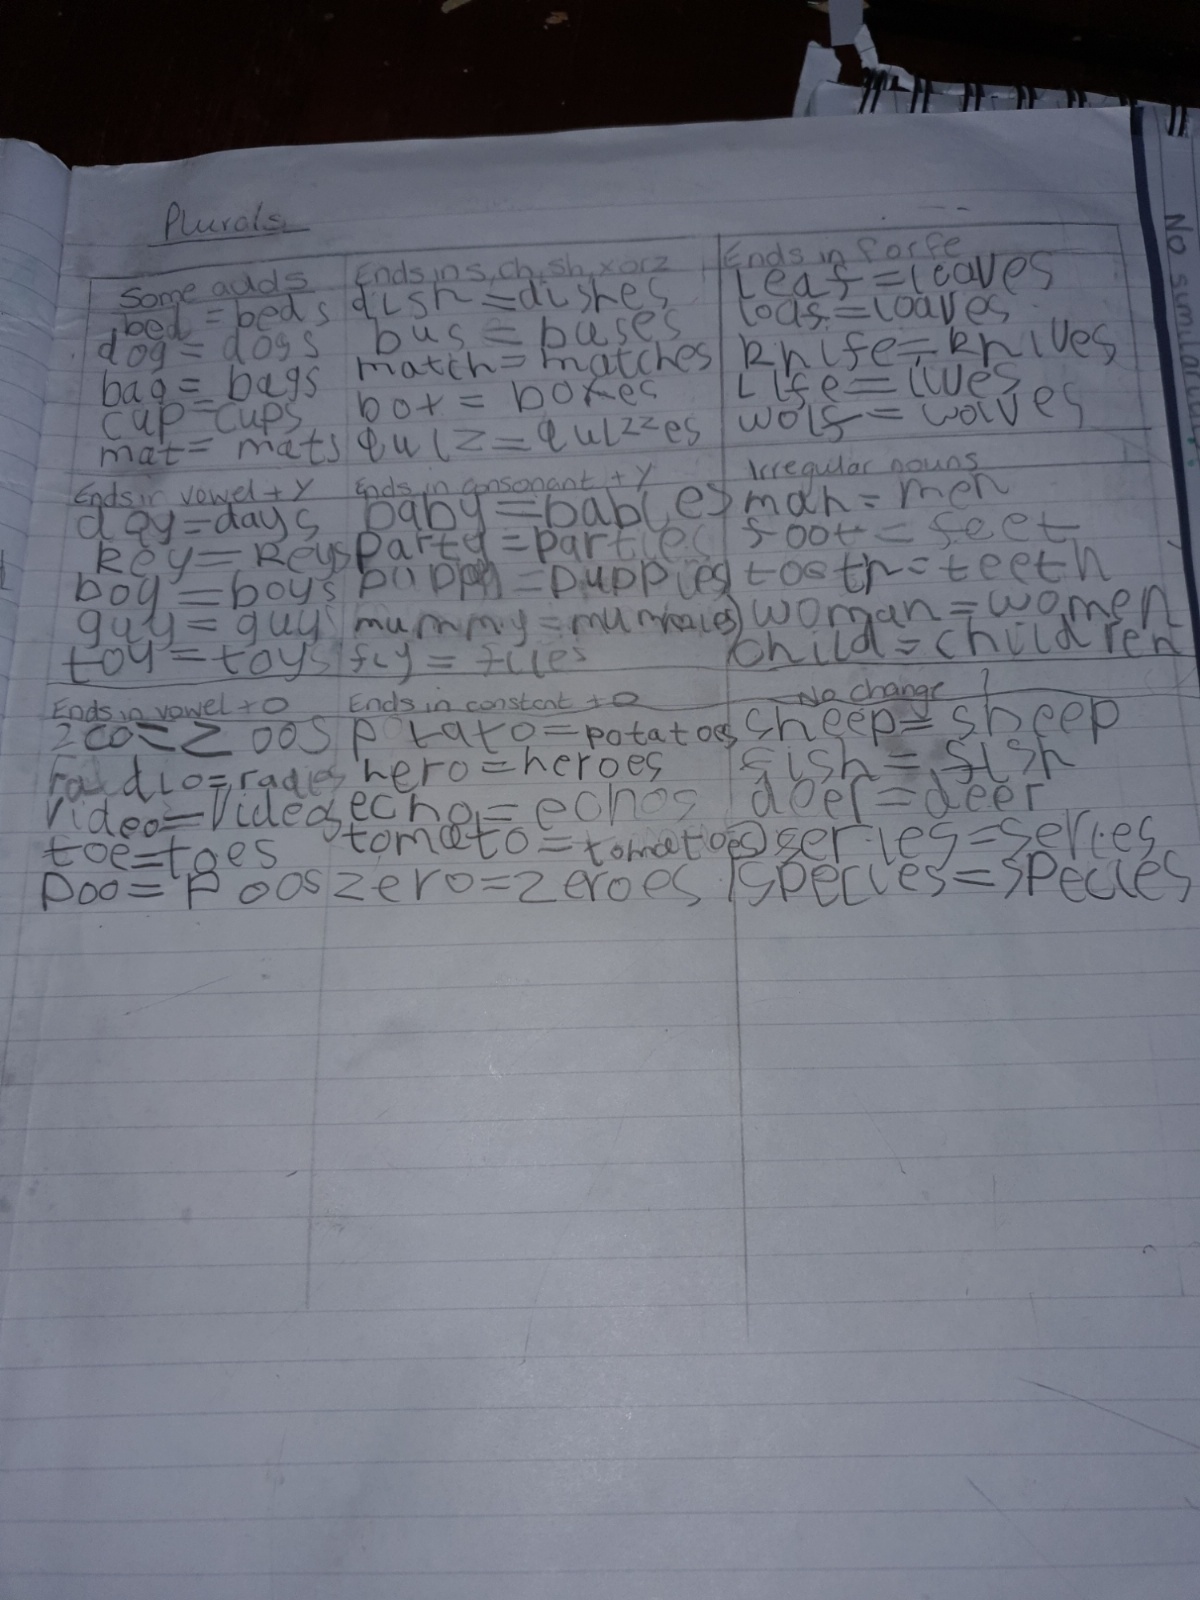 Plurals
Some adds
bed = beds
dog = dogs
bag = bags
cup = cups
mat = mats
Ends in s, ch, sh, x or z
dish = dishes
bus = buses
match = matches
box = boxes
quiz = quizzes
Ends in f or fe
Leaf = leaves
loaf = loaves
knife = knives
Life = lives
wolf = wolves
Ends in vowel + y
day = days
key = keys
boy = boys
guy = guys
toy = toys
Ends in consonant + y
baby = babies
party = parties
puppy = puppies
mummy = mummies
fly = flies
Irregular nouns
man = men
foot = feet
tooth = teeth
woman = women
child = children
Ends in vowel + o
zoo = zoos
video = Videos
toe = toes
poo = poos
Ends in constant + o
potato = potatoes
hero = heroes
echo = echos
tomato = tomatoes
zero = zeroes
No change
sheep = sheep
fish = fish
deer = deer
series = series
species = species